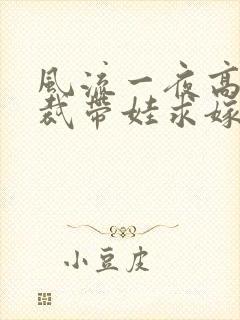 风流一夜高
裁带娃求嫁
小豆皮